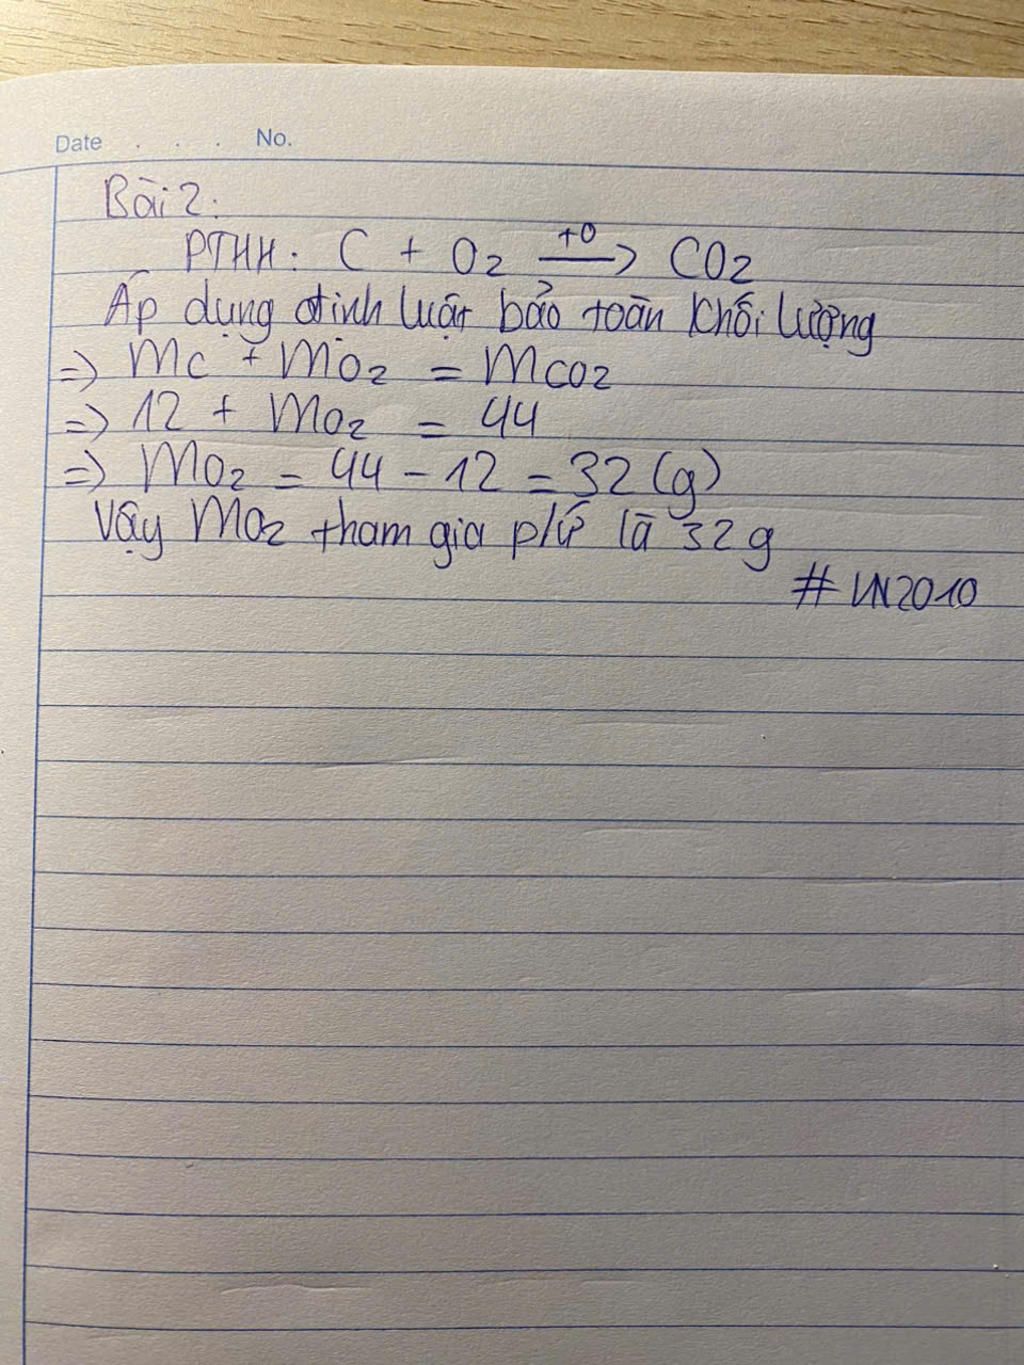 Date . . . . No.
Bài 2:
PTHH: C + O2 —t0→ CO2
Áp dụng định luật bảo toàn khối lượng
=> mC + mO2 = mCO2
=> 12 + mO2 = 44
=> mO2 = 44 - 12 = 32 (g)
Vậy mO2 tham gia p/ứ là 32g
# VN2010